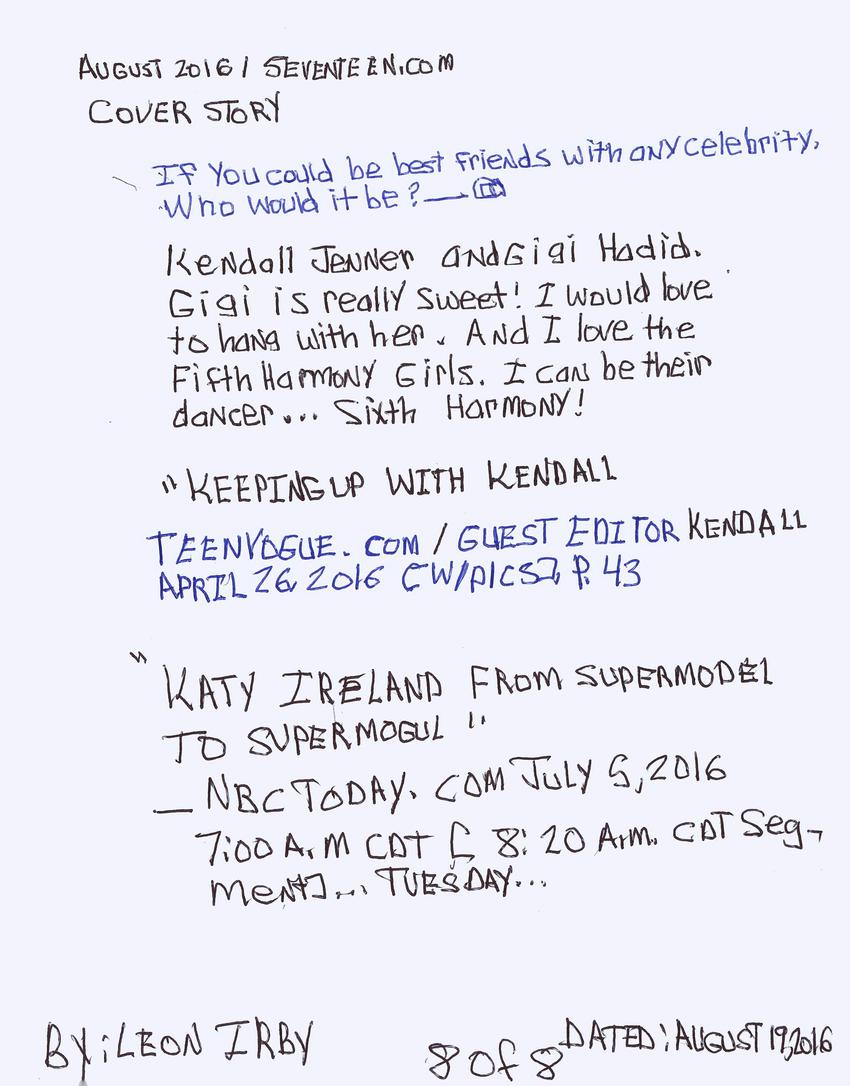 AUGUST 2016 / SEVENTEEN.COM
COVER STORY
If You could be best friends with any celebrity,
Who would it be? —
Kendall Jenner and Gigi Hadid.
Gigi is really sweet! I would love
to hang with her. And I love the
Fifth Harmony Girls. I can be their
dancer... Sixth Harmony!
"KEEPING UP WITH KENDALL
TEENVOGUE.COM / GUEST EDITOR KENDALL
APRIL 26, 2016 [W/PICS], P. 43
"KATY IRELAND FROM SUPERMODEL
TO SUPERMOGUL"
— NBC TODAY. COM JULY 5, 2016
7:00 A.M CDT [ 8:20 A.M. CDT Seg-
ment]... TUESDAY...
BY: LEON IRBY
8 of 8
DATED: AUGUST 19, 2016